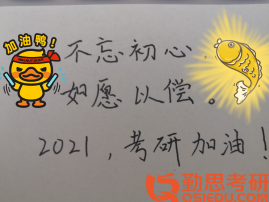 加油鸭!
不忘初心
如愿以偿。
2021,考研加油!
勤思考研
QSIEDU.COM